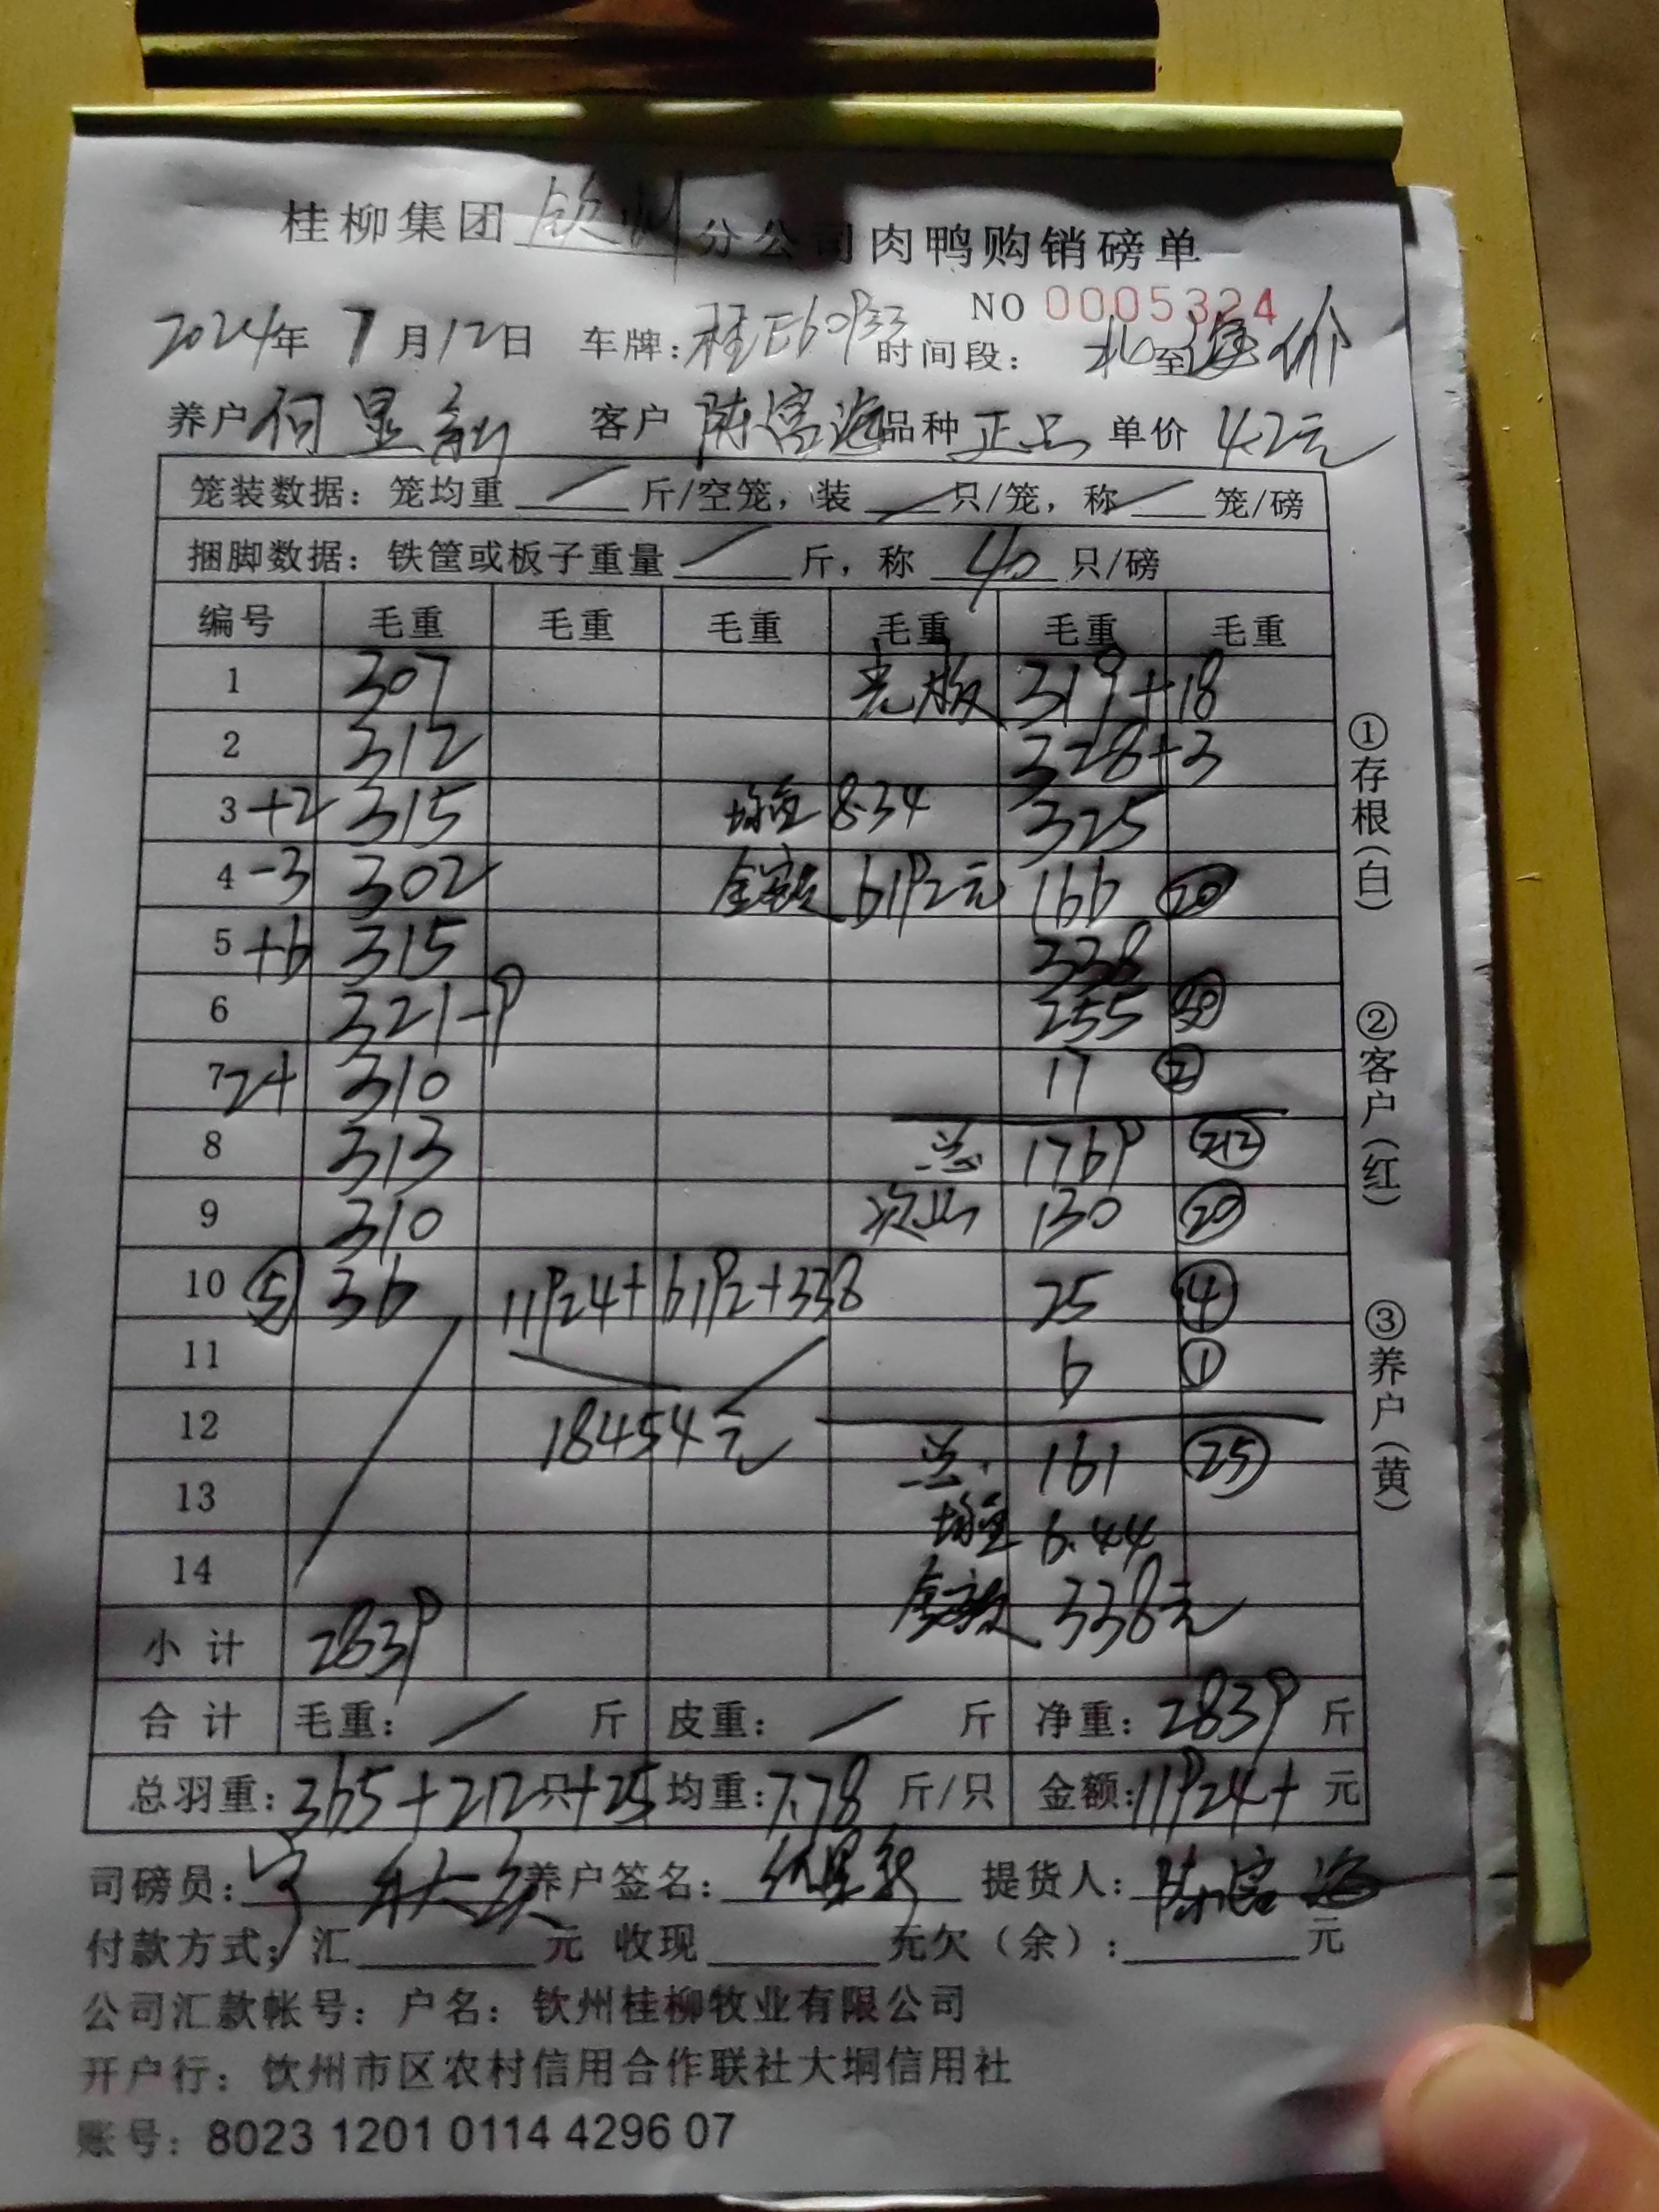 桂柳集团 钦州 分公司肉鸭购销磅单
NO 0005324
2024年 7月12日 车牌：桂E60933 时间段： 北至海价
养户 何显新 客户 陈富海 品种 正品 单价 4.2元
笼装数据：笼均重 / 斤/空笼，装 / 只/笼，称 / 笼/磅
捆脚数据：铁筐或板子重量 / 斤，称 40 只/磅
编号 毛重 毛重 毛重 毛重 毛重 毛重
1 307 光板 319+18
2 312 328+3
3 +2 315 均重 8.34 325
4 -3 302 金额 6192元 166 ⑳
5 +6 315 338
6 321-9 255 ㉚
7 2+ 310 17 ②
8 313 总 1769 (212)
9 310 次品 130 ⑳
10 ⑤ 36 11924+6192+338 25 ④
11 6 ①
12 18454元 总 161 ㉕
13 均重 6.44
14 金额 338元
小计 2839
合计 毛重： / 斤 皮重： / 斤 净重：2839 斤
总羽重：365+212只+25 均重：7.78 斤/只 金额：11924+ 元
司磅员：宁 养户签名：何显新 提货人：陈富海
付款方式：汇 元 收现 元欠（余）： 元
公司汇款帐号：户名：钦州桂柳牧业有限公司
开户行：钦州市区农村信用合作联社大垌信用社
账号：8023 1201 0114 4296 07
①存根（白）
②客户（红）
③养户（黄）